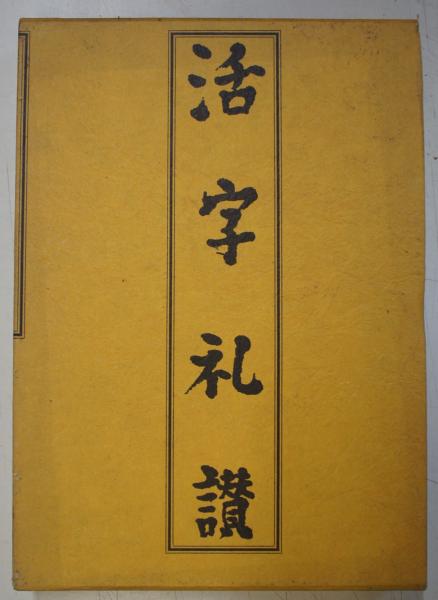 活字礼讃